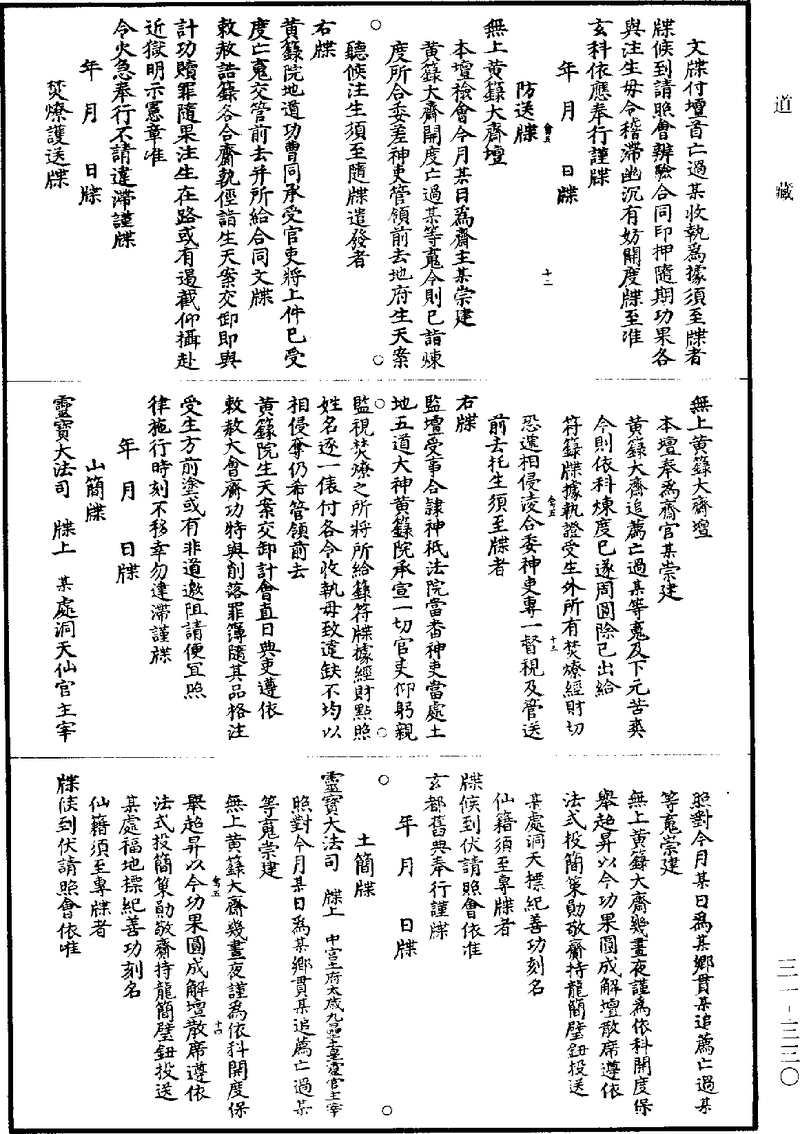 道藏
文牒付壇首亡過某收執爲據須至牒者
牒候到請照會辨驗合同印押隨期功果各
與注生毋令稽滯幽沉有妨開度牒至准
玄科依應奉行謹牒
年　月　日牒
防送牒
無上黃籙大齋壇
本壇檢會今月某日爲齋主某崇建
黃籙大齋開度亡過某等䰟今則已詣煉
度所合委差神吏管領前去地府生天案
聽候注生須至隨牒遣發者
右牒
黃籙院地道功曹同承受官吏將上件已受
度亡䰟交管前去并所給合同文牒
敕赦誥籙各合齎執徑詣生天案交卸即與
計功贖罪隨果注生在路或有遏截仰攝赴
近獄明示憲章准
令火急奉行不請違滯謹牒
年　月　日牒
焚燎護送牒
無上黃籙大齋壇
本壇奉爲齋官某崇建
黃籙大齋追薦亡過某等䰟及下元苦爽
今則依科煉度已遂周圓除已出給
符籙牒據執證受生外所有焚燎經財切
恐遞相侵凌合委神吏專一督視及管送
前去托生須至牒者
右牒
監壇受事合隸神祇法院當畨神吏當處土
地五道大神黃籙院承宣一切官吏仰躬親
監視焚燎之所將所給籙符牒據經財點照
姓名逐一俵付各令收執毋致違缺不均以
相侵奪仍希管領前去
黃籙院生天案交卸計會直日典吏遵依
敕赦大會齋功特與削落罪簿隨其品格注
受生方前塗或有非道邀阻請便宜照
律施行時刻不移幸勿違滯謹牒
年　月　日牒
山簡牒
靈寶大法司　牒上　某處洞天仙官主宰
照對今月某日爲某鄉貫某追薦亡過某
等䰟崇建
無上黃籙大齋幾晝夜謹爲依科開度保
舉超昇以今功果圓成解壇散席遵依
法式投簡策勳敬齋持龍簡璧鈕投送
某處洞天標紀善功刻名
仙籍須至專牒者
牒候到伏請照會依准
玄都舊典奉行謹牒
年　月　日牒
土簡牒
靈寶大法司　牒上　中宮土府太歲九壘土皇靈官主宰
照對今月某日爲某鄉貫某追薦亡過某
等䰟崇建
無上黃籙大齋幾晝夜謹爲依科開度保
舉超昇以今功果圓成解壇散席遵依
法式投簡策勳敬齋持龍簡璧鈕投送
某處福地標紀善功刻名
仙籍須至專牒者
牒候到伏請照會依准
三一－二二〇